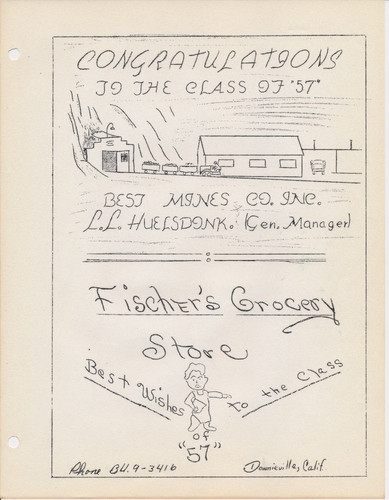 CONGRATULATIONS
TO THE CLASS OF "57"
BEST MINES CO. INC.
L.L. HUELSDONK. (Gen. Manager)
Fischer's Grocery
Store
Best Wishes to the Class
of
"57"
Phone BU. 9-3416
Downieville, Calif.